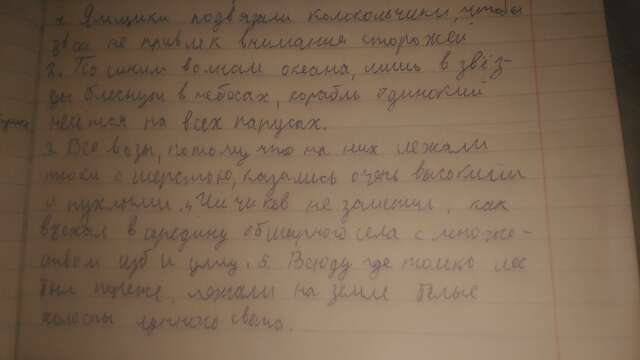 1. Ямщики подвязали колокольчики, чтобы
звон не привлёк внимания сторожей
2. По синим волнам океана, лишь в звёз-
ды блеснут в небесах, корабль одинокий
несётся на всех парусах.
3. Все возы, потому что на них лежали
тюки с шерстью, казались очень высокими
и пухлыми. 4. Чичиков не заметил, как
въехал в середину обширного села с множе-
ством изб и улиц. 5. Всюду где только лес
был пореже, лежали на земле белые
холсты лунного света.